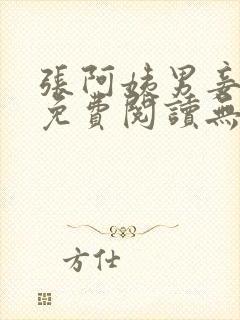 張阿姨男妾
免費閱讀無
方仕